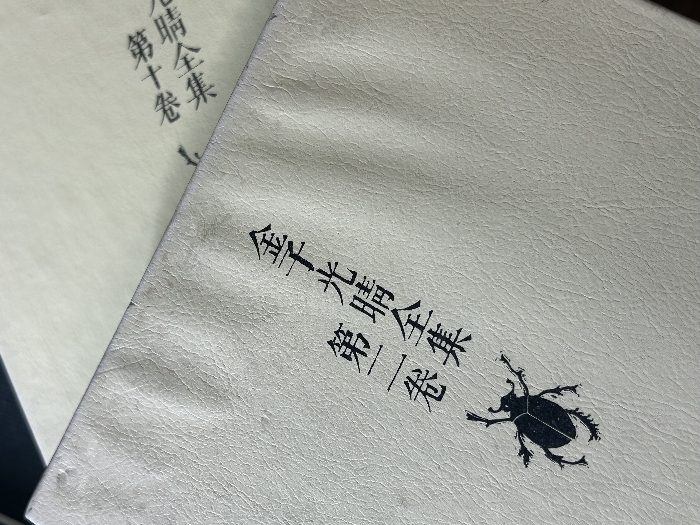 金子光晴全集
第二卷
光晴全集
第十卷